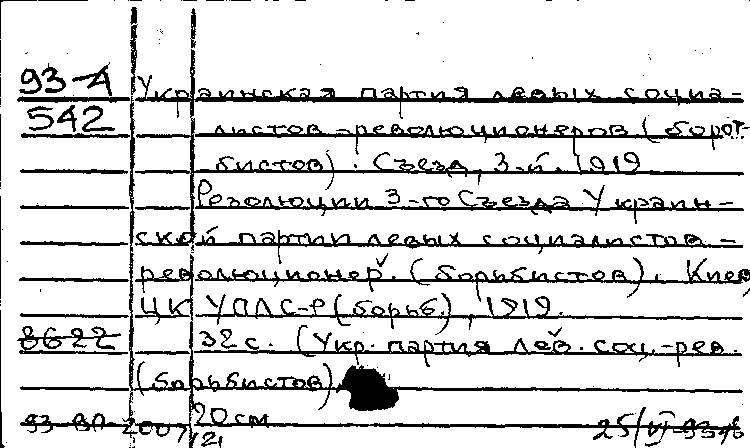 93-4 Украинская партия левых социа-
542 листов-революционеров (борот-
бистов). Съезд, 3-й. 1919
Резолюции 3-го Съезда Украин-
ской партии левых социалистов-
революционер. (борьбистов). Киев,
ЦК УПЛС-Р (борьб.), 1919.
8622 32 с. (Укр. партия лев. соц.-рев.
(борьбистов).
20 см